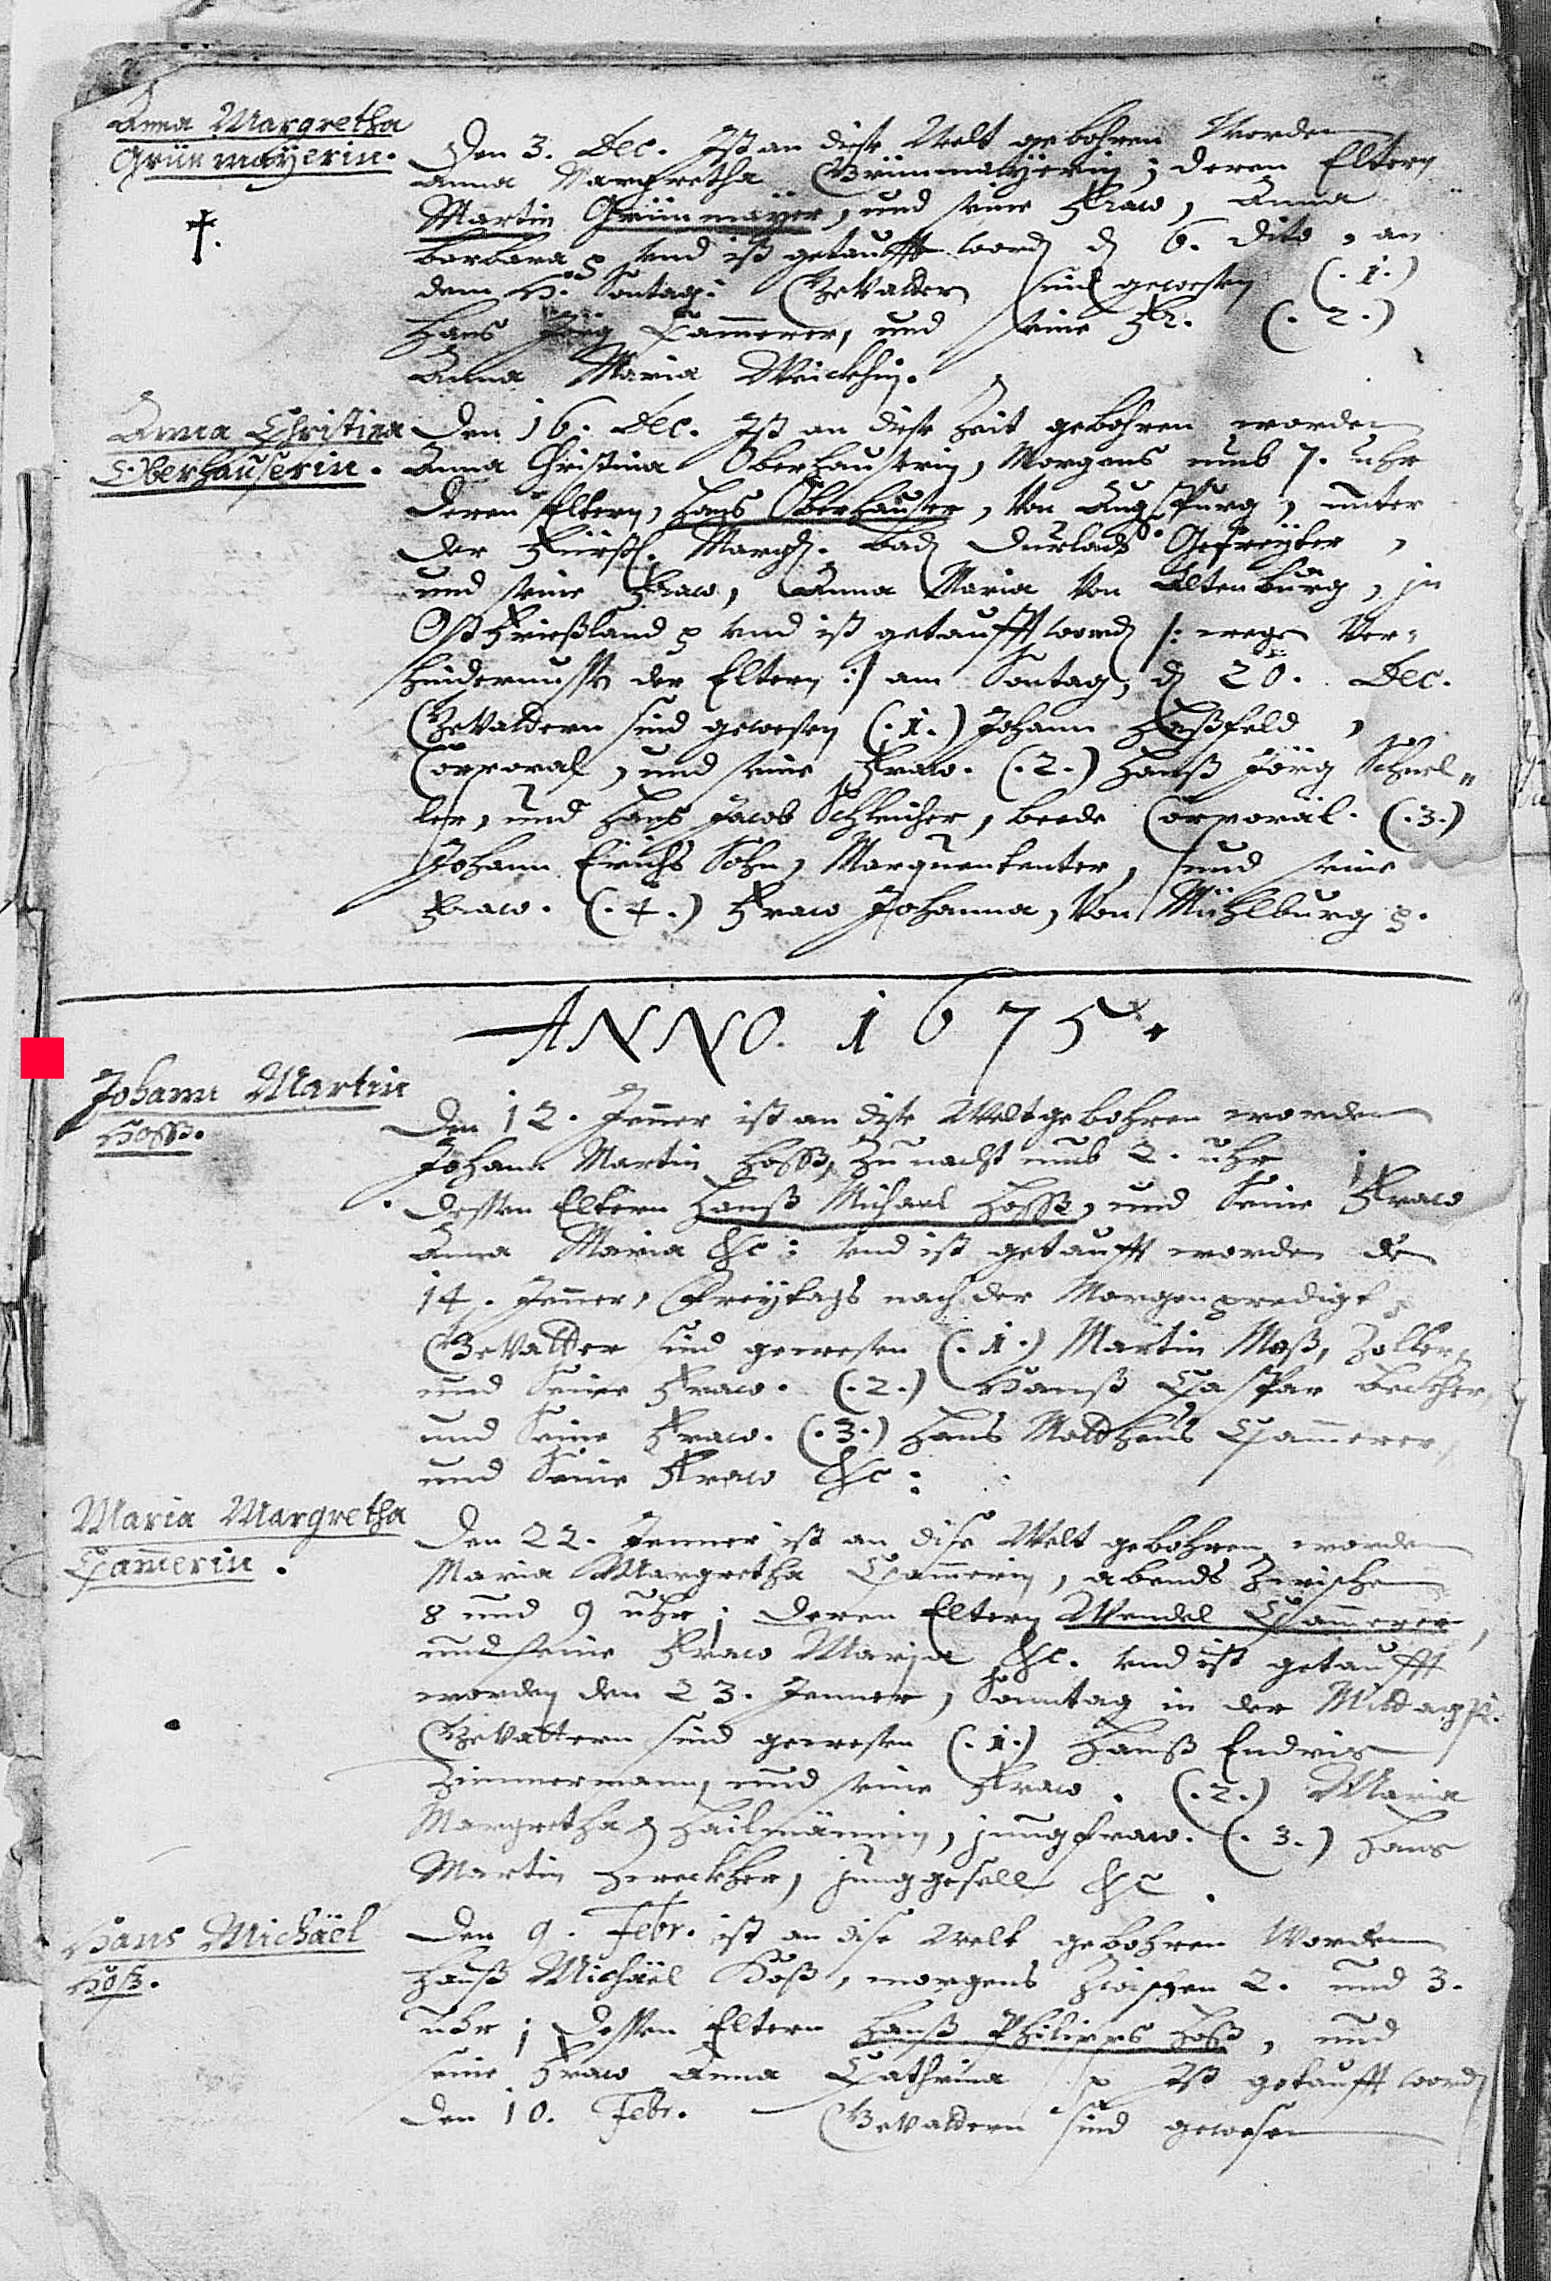 Anna Margretha
Grünmaÿerin.
Den 3. Dec. Ist an diese Welt gebohren Worden
Anna Margretha Grünmaÿerin; deren Eltern
Martin Grünmaÿer, und seine Fraw, Anna
Barbara und ist getaufft word den 6. dito, an
dem Sontag. Gevatter sind gewesen (.1.)
Hans Jörg Cammerer, und seine Fr. (.2.)
Anna Maria
Anna Christina
Oberhauserin.
Den 16. Dec. Ist an diese Zeit gebohren worden
Anna Christina Oberhauserin, Morgens umb 7. Uhr
Deren Eltern, Hans Oberhauser, Von Augspurg, unter
der Fürstl. Marg. Bad Durlach Gefreÿter,
und seine Fraw, Anna Maria von Altenburg, in
Ost Frießland und ist getaufft word /: wege Ver=
hindernuß der Eltern :/ am Sontag, den 20. Dec.
Gevattern sind gewesen (.1.) Johann
Corporal, und seine Fraw. (.2.) Hanß Jörg
ler, und Hans Jacob Schleicher, beede Corporäl. (.3.)
Johann Sohn, Marquententer, und seine
Fraw. (.4.) Fraw Johanna, Von Mühlburg
ANNO. 1675.
Johann Martin
Hoss.
Den 12. Jenner ist an dise Welt gebohren worden
Johann Martin Hoss, Zu nacht umb 2. uhr
dessen Eltern Hanß Michael Hoss, und Seine Fraw
Anna Maria &c: und ist getaufft worden den
14. Jenner, Freÿtags nach der Morgenpredigt
Gevatter sind gewesen (.1.) Martin Zoller,
und Seine Fraw. (.2.) Hanß Caspar Beckher,
und Seine Fraw. (.3.) Hans Matthäus Cammerer,
und Seine Fraw &c:
Maria Margretha
Cammerin.
Den 22. Jenner ist an dise Welt gebohren worden
Maria Margretha Cammerin, abends Zwischen
8 und 9 uhr; deren Eltern Wendel Cammerer,
und seine Fraw Maria &c. und ist getaufft
worden den 23. Jenner, Sonntag in der
Gevattern sind gewesen (.1.) Hanß Endris
Zimmermann, und seine Fraw. (.2.) Maria
Margretha Hailmännin, jungfraw. (.3.) Hans
Martin junggesell &c.
Hans Michäel
Hoß.
Den 9. Febr. ist an dise Welt gebohren Worden
Hanß Michäel Hoß, morgens Zwischen 2. und 3.
uhr; dessen Eltern Hanß Philipps Hoß, und
seine Fraw Anna Cathrina Ist getaufft word
den 10. Febr. Gevattern sind gewesen